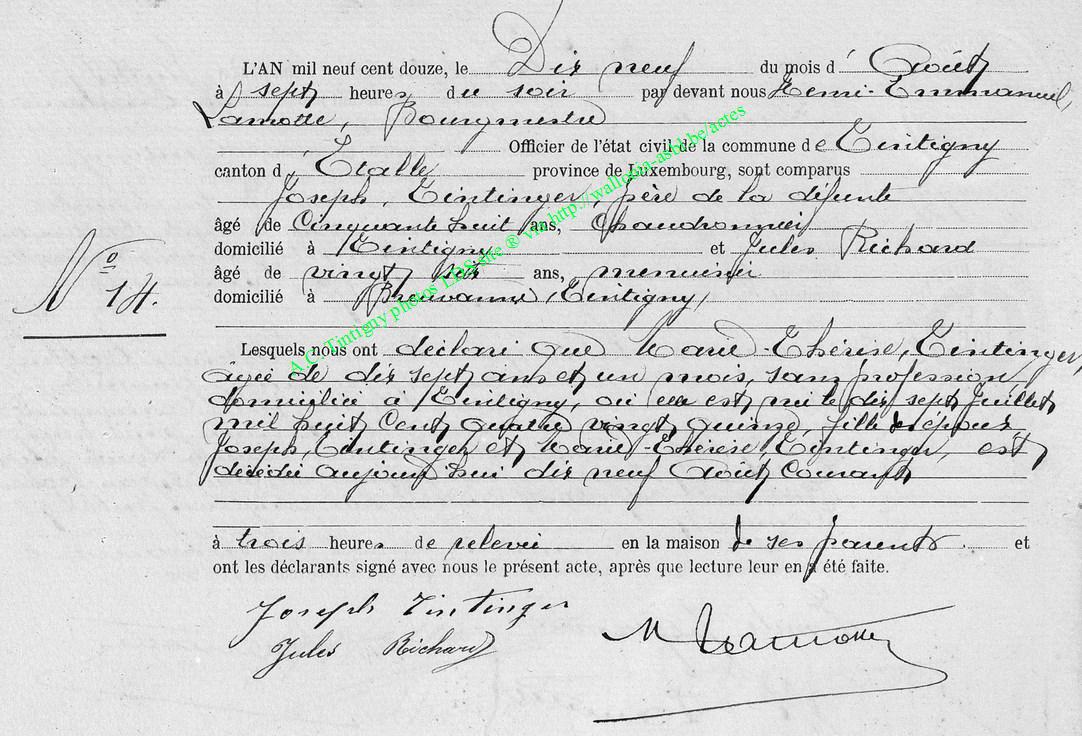 L'AN mil neuf cent douze, le Dix neuf du mois d' Août
à sept heures du soir par devant nous Henri-Emmanuel,
Lamotte, Bourgmestre
Officier de l'état civil de la commune de Tintigny
canton d' Etalle province de Luxembourg, sont comparus
Joseph, Tintinger, père de la défunte
âgé de Cinquante huit ans, Chaudronnier
domicilié à Tintigny et Jules Richard
âgé de vingt six ans, menuisier
domicilié à Breuvanne, (Tintigny)
N° 14.
Lesquels nous ont déclaré que Marie-Thérèse, Tintinger,
agée de dix sept ans et un mois, sans profession,
domiciliée à Tintigny, où elle est née le dix sept Juillet
mil huit Cent quatre vingt quinze, fille des époux
Joseph, Tintinger et Marie-Thérèse, Tintinger, est
décédée aujourd'hui dix neuf Août Courant
à trois heures de relevée en la maison de ses parents et
ont les déclarants signé avec nous le présent acte, après que lecture leur en a été faite.
Joseph Tintinger
Jules Richard
Lamotte
A.C. Tintigny photos LDS site ® via http://wallonia-asbl.be/actes